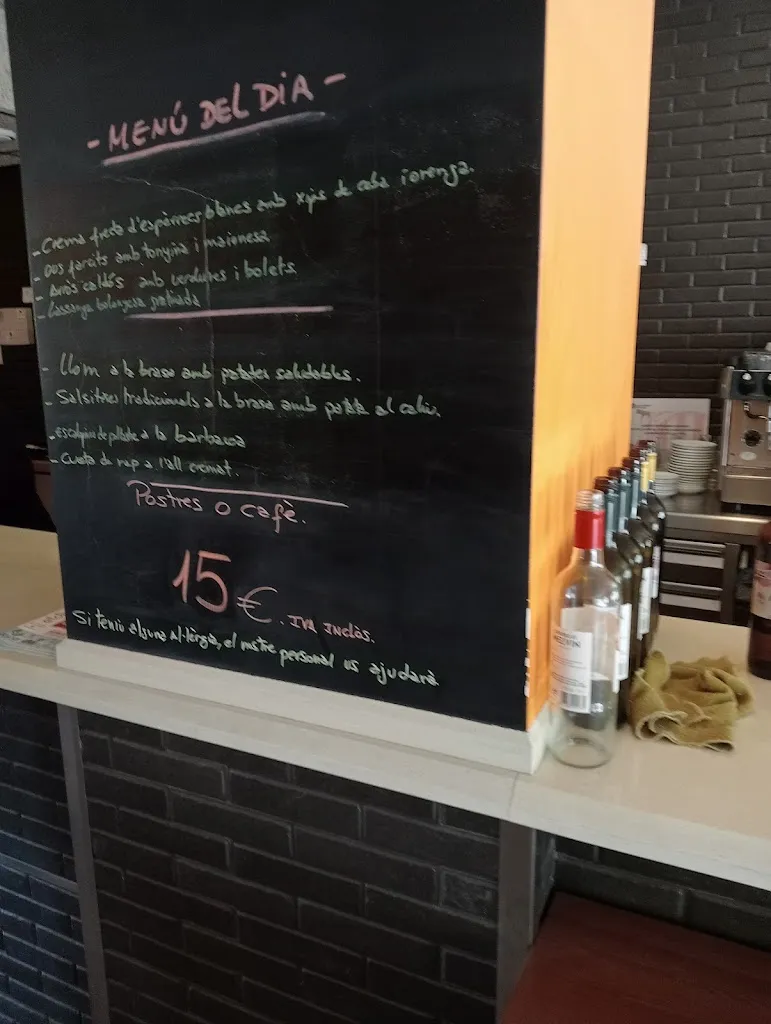 - MENÚ DEL DIA -
- Crema freda d'espàrrecs blancs amb xips de ceba i orenga.
- Ous farcits amb tonyina i maionesa
- Arròs caldós amb verdures i bolets.
- Lassanya bolonyesa gratinada
- Llom a la brasa amb patates saludables.
- Salsitxes tradicionals a la brasa amb patata al caliu.
- escalopins de pollastre a la barbacoa
- Cueta de rap a l'all cremat.
Postres o cafè.
15 € . IVA INCLÒS.
Si teniu alguna al·lèrgia, el nostre personal us ajudarà